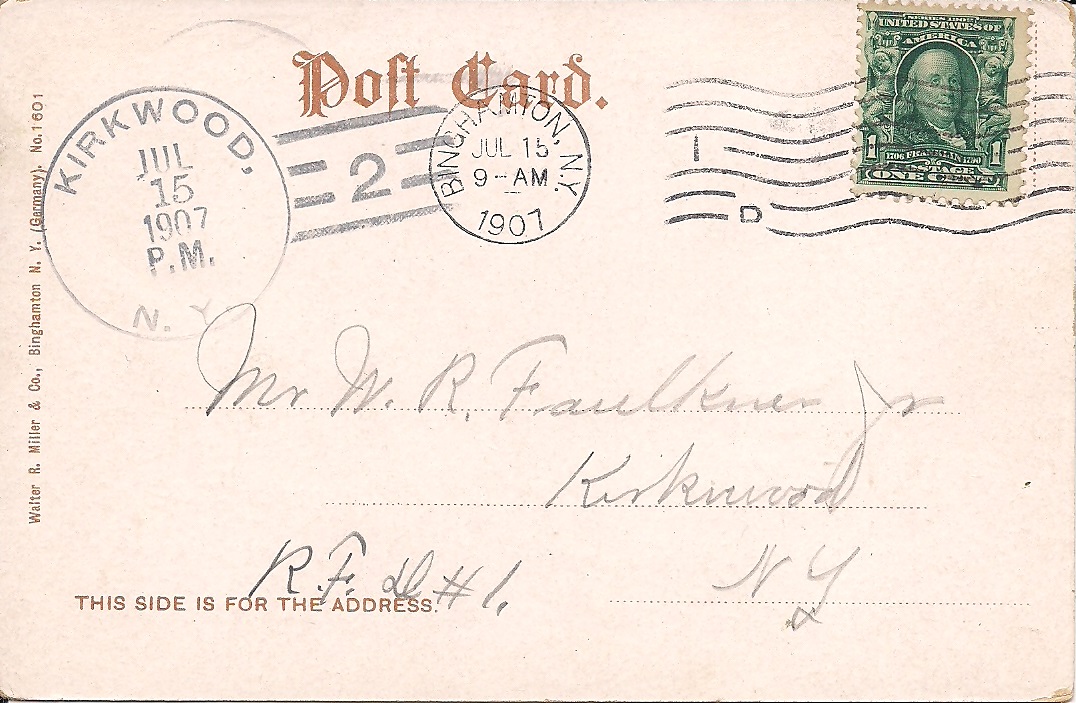 Post Card.
SERIES 1902
UNITED STATES OF
AMERICA
1706 FRANKLIN 1790
POSTAGE
1 ONE CENT 1
KIRKWOOD,
JUL
15
1907
P.M.
N. Y.
2
BINGHAMTON, N.Y.
JUL 15
9-AM
1907
D
Walter R. Miller & Co., Binghamton N. Y. (Germany). No. 1601
Mr W. R. Faulkner Jr
Kirkwood
N Y
R. F. D #1.
THIS SIDE IS FOR THE ADDRESS.